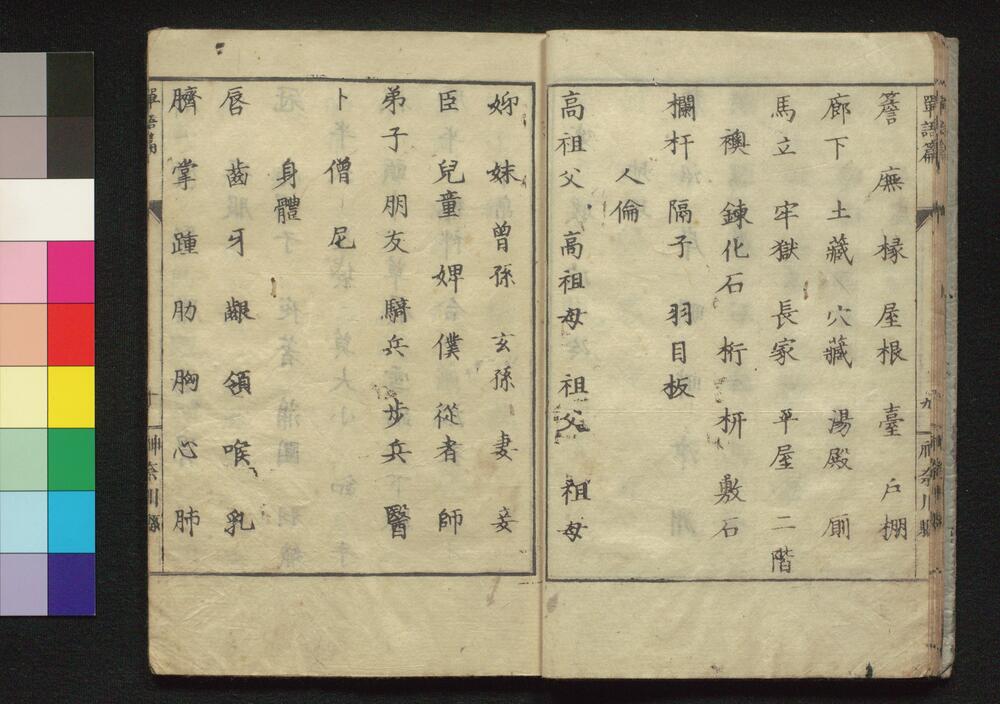 單語篇
九
神奈川縣
簷 廡 椽 屋根 臺 戸棚
廊下 土藏 穴藏 湯殿 厠
馬立 牢獄 長家 平屋 二階
襖 鍊化石 桁 枅 敷石
欄杆 隔子 羽目板
人倫
高祖父 高祖母 祖父 祖母
姉 妹 曾孫 玄孫 妻 妾
臣 兒童 婢 僕 從者 師
弟子 朋友 騎兵 步兵 醫
卜 僧 尼
身體
唇 齒 牙 齦 頷 喉 乳
臍 掌 踵 肋 胸 心 肺
單語篇
十
神奈川縣